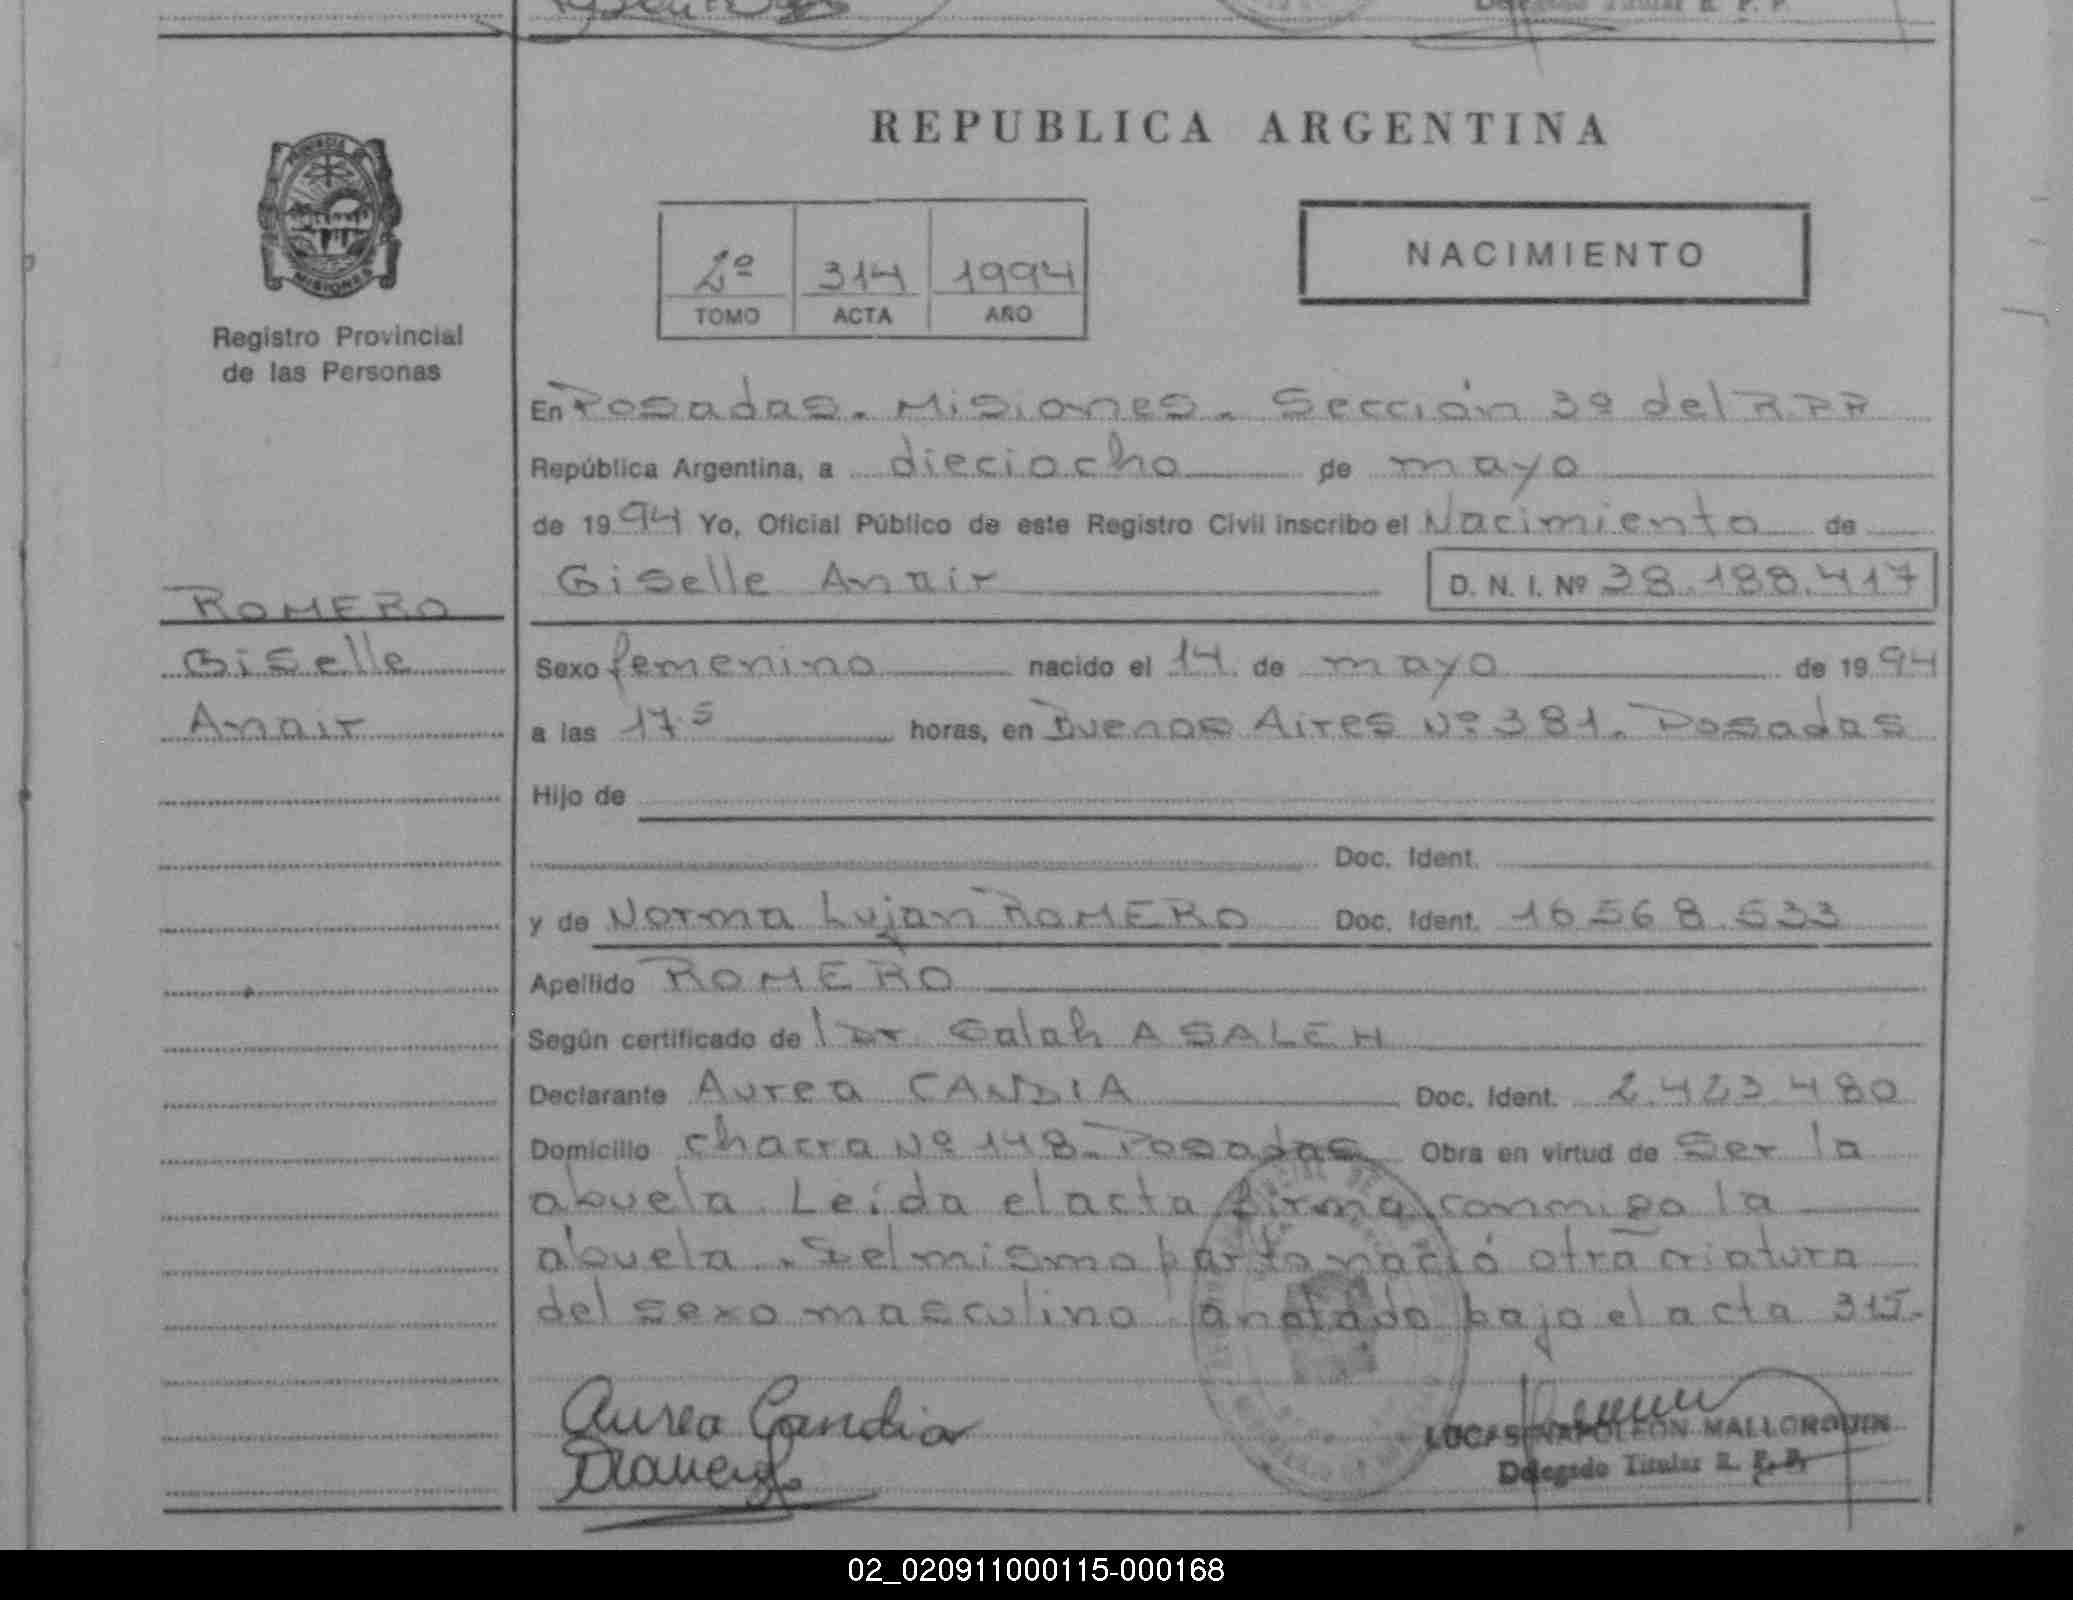 REPUBLICA ARGENTINA
PROVINCIA DE MISIONES
Registro Provincial
de las Personas
2º 314 1994
TOMO ACTA AÑO
NACIMIENTO
En Posadas. Misiones. Sección 3º del R.P.P
República Argentina, a dieciocho de mayo
de 1994 Yo, Oficial Público de este Registro Civil inscribo el Nacimiento de
Giselle Anair D. N. I. Nº 38.188.417
ROMERO
Giselle
Anair
Sexo femenino nacido el 14 de mayo de 1994
a las 17.5 horas, en Buenos Aires Nº 381. Posadas
Hijo de
Doc. Ident.
y de Norma Lujan ROMERO Doc. Ident. 16.568.533
Apellido ROMERO
Según certificado de l Dr. Salah A SALEH
Declarante Aurea CANDIA Doc. Ident. 2.423.480
Domicilio chacra Nº 148. Posadas Obra en virtud de Ser la
abuela. Leída el acta firma conmigo la
abuela. Del mismo parto nació otra criatura
del sexo masculino anotado bajo el acta 315.
Aurea Candia
LUCAS NAPOLEON MALLORQUIN
Delegado Titular R. P. P.
02_020911000115-000168